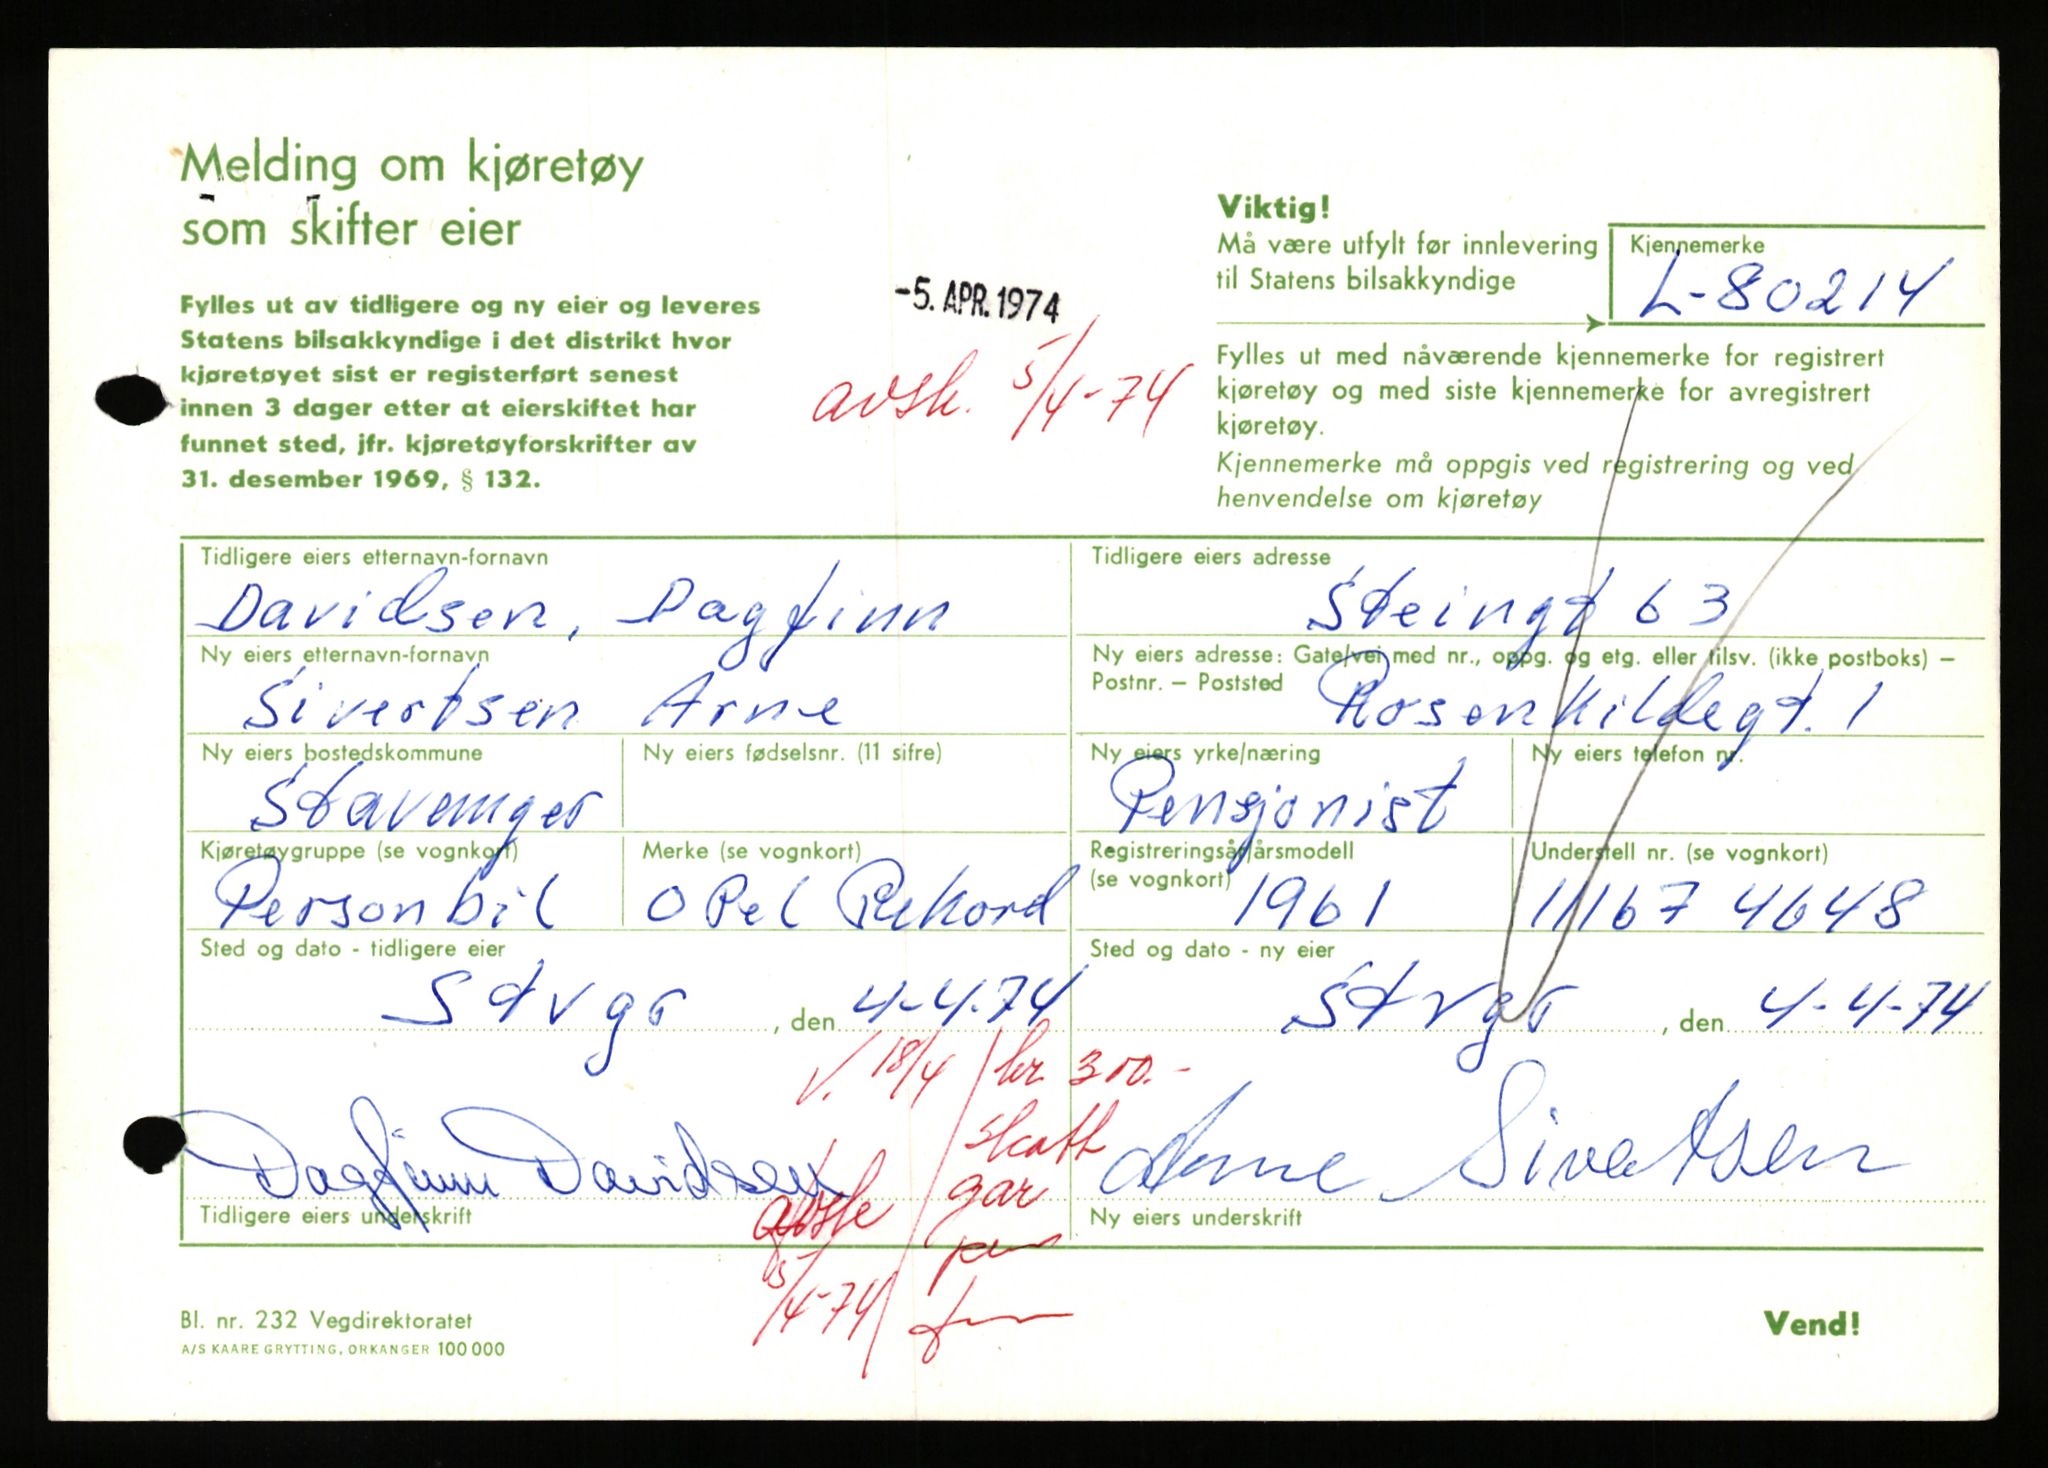 Melding om kjøretøy
som skifter eier
Fylles ut av tidligere og ny eier og leveres
Statens bilsakkyndige i det distrikt hvor
kjøretøyet sist er registerført senest
innen 3 dager etter at eierskiftet har
funnet sted, jfr. kjøretøyforskrifter av
31. desember 1969, § 132.
-5. APR. 1974
avsk. 5/4-74
Viktig!
Må være utfylt før innlevering
til Statens bilsakkyndige
Kjennemerke
L-80214
Fylles ut med nåværende kjennemerke for registrert
kjøretøy og med siste kjennemerke for avregistrert
kjøretøy.
Kjennemerke må oppgis ved registrering og ved
henvendelse om kjøretøy
Tidligere eiers etternavn-fornavn
Davidsen, Dagfinn
Tidligere eiers adresse
Steingt 63
Ny eiers etternavn-fornavn
Sivertsen Arne
Ny eiers adresse: Gate/vei med nr., oppg. og etg. eller tilsv. (ikke postboks) –
Postnr. – Poststed
Rosenkildegt. 1
Ny eiers bostedskommune
Stavemger
Ny eiers fødselsnr. (11 sifre)
Ny eiers yrke/næring
Pensjonist
Ny eiers telefon nr.
Kjøretøygruppe (se vognkort)
Personbil
Merke (se vognkort)
Opel Rekord
Registreringsår/årsmodell
(se vognkort)
1961
Understell nr. (se vognkort)
11167 4648
Sted og dato - tidligere eier
Stvgr, den 4-4-74
Sted og dato - ny eier
Stvgr, den 4-4-74
V. 18/4
kr. 300.-
skatt
gar
Dagfinn Davidsen
Tidligere eiers underskrift
avsk
5/4-74
Arne Sivertsen
Ny eiers underskrift
Bl. nr. 232 Vegdirektoratet
A/S KAARE GRYTTING, ORKANGER 100 000
Vend!